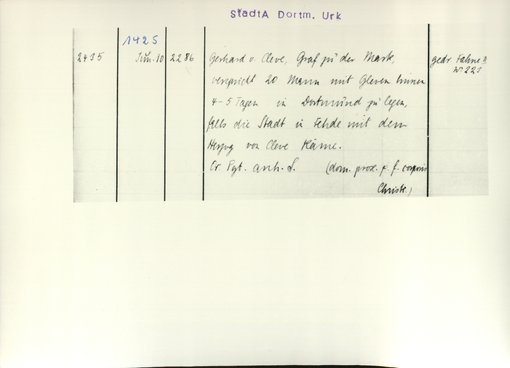 StadtA Dortm. Urk
1425
2435 Jun. 10 2286 Gerhard v. Cleve, Graf zu der Mark, gedr. Fahne II
verspricht 20 Mann mit Gleven binnen nr 220
4-5 Tagen in Dortmund zu legen,
falls die Stadt in Fehde mit dem
Herzog von Cleve käme.
Or. Pgt. anh. S. (dom. prox. p. f. corporis
Christi)